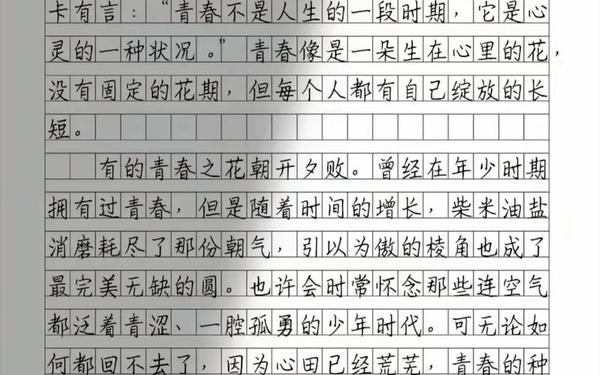 卡有言：“青春不是人生的一段时期，它是心
灵的一种状况。”青春像是一朵生在心里的花，
没有固定的花期，但每个人都有自己绽放的长
短。
有的青春之花朝开夕败。曾经在年少时期
拥有过青春，但是随着时间的增长，柴米油盐
消磨耗尽了那份朝气，引以为傲的棱角也成了
最完美无缺的圆。也许会时常怀念那些连空气
都泛着青涩、一腔孤勇的少年时代。可无论如
何都回不去了，因为心田已经荒芜，青春的种